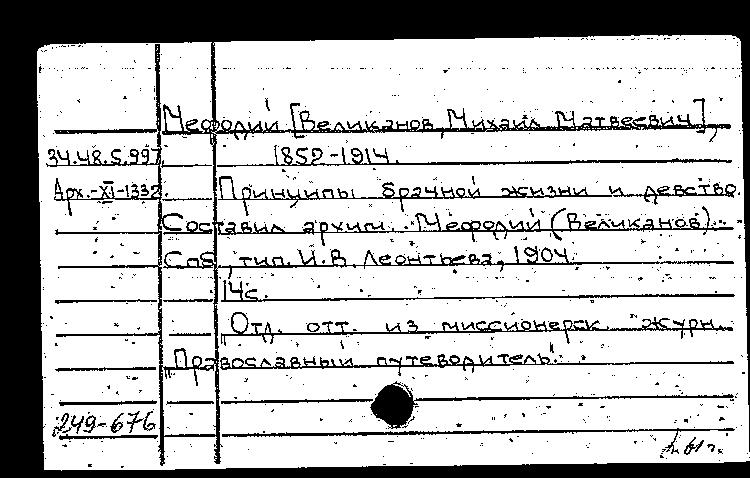 Мефодий [Великанов, Михаил Матвеевич],
34.48.5.997 1852-1914.
Арх.-XI-1332. Принципы брачной жизни и девство.
Составил архим. Мефодий (Великанов).
Спб, тип. И.В. Леонтьева, 1904.
14с.
Отд. отт. из миссионерск. журн.
"Православный путеводитель".
249-676